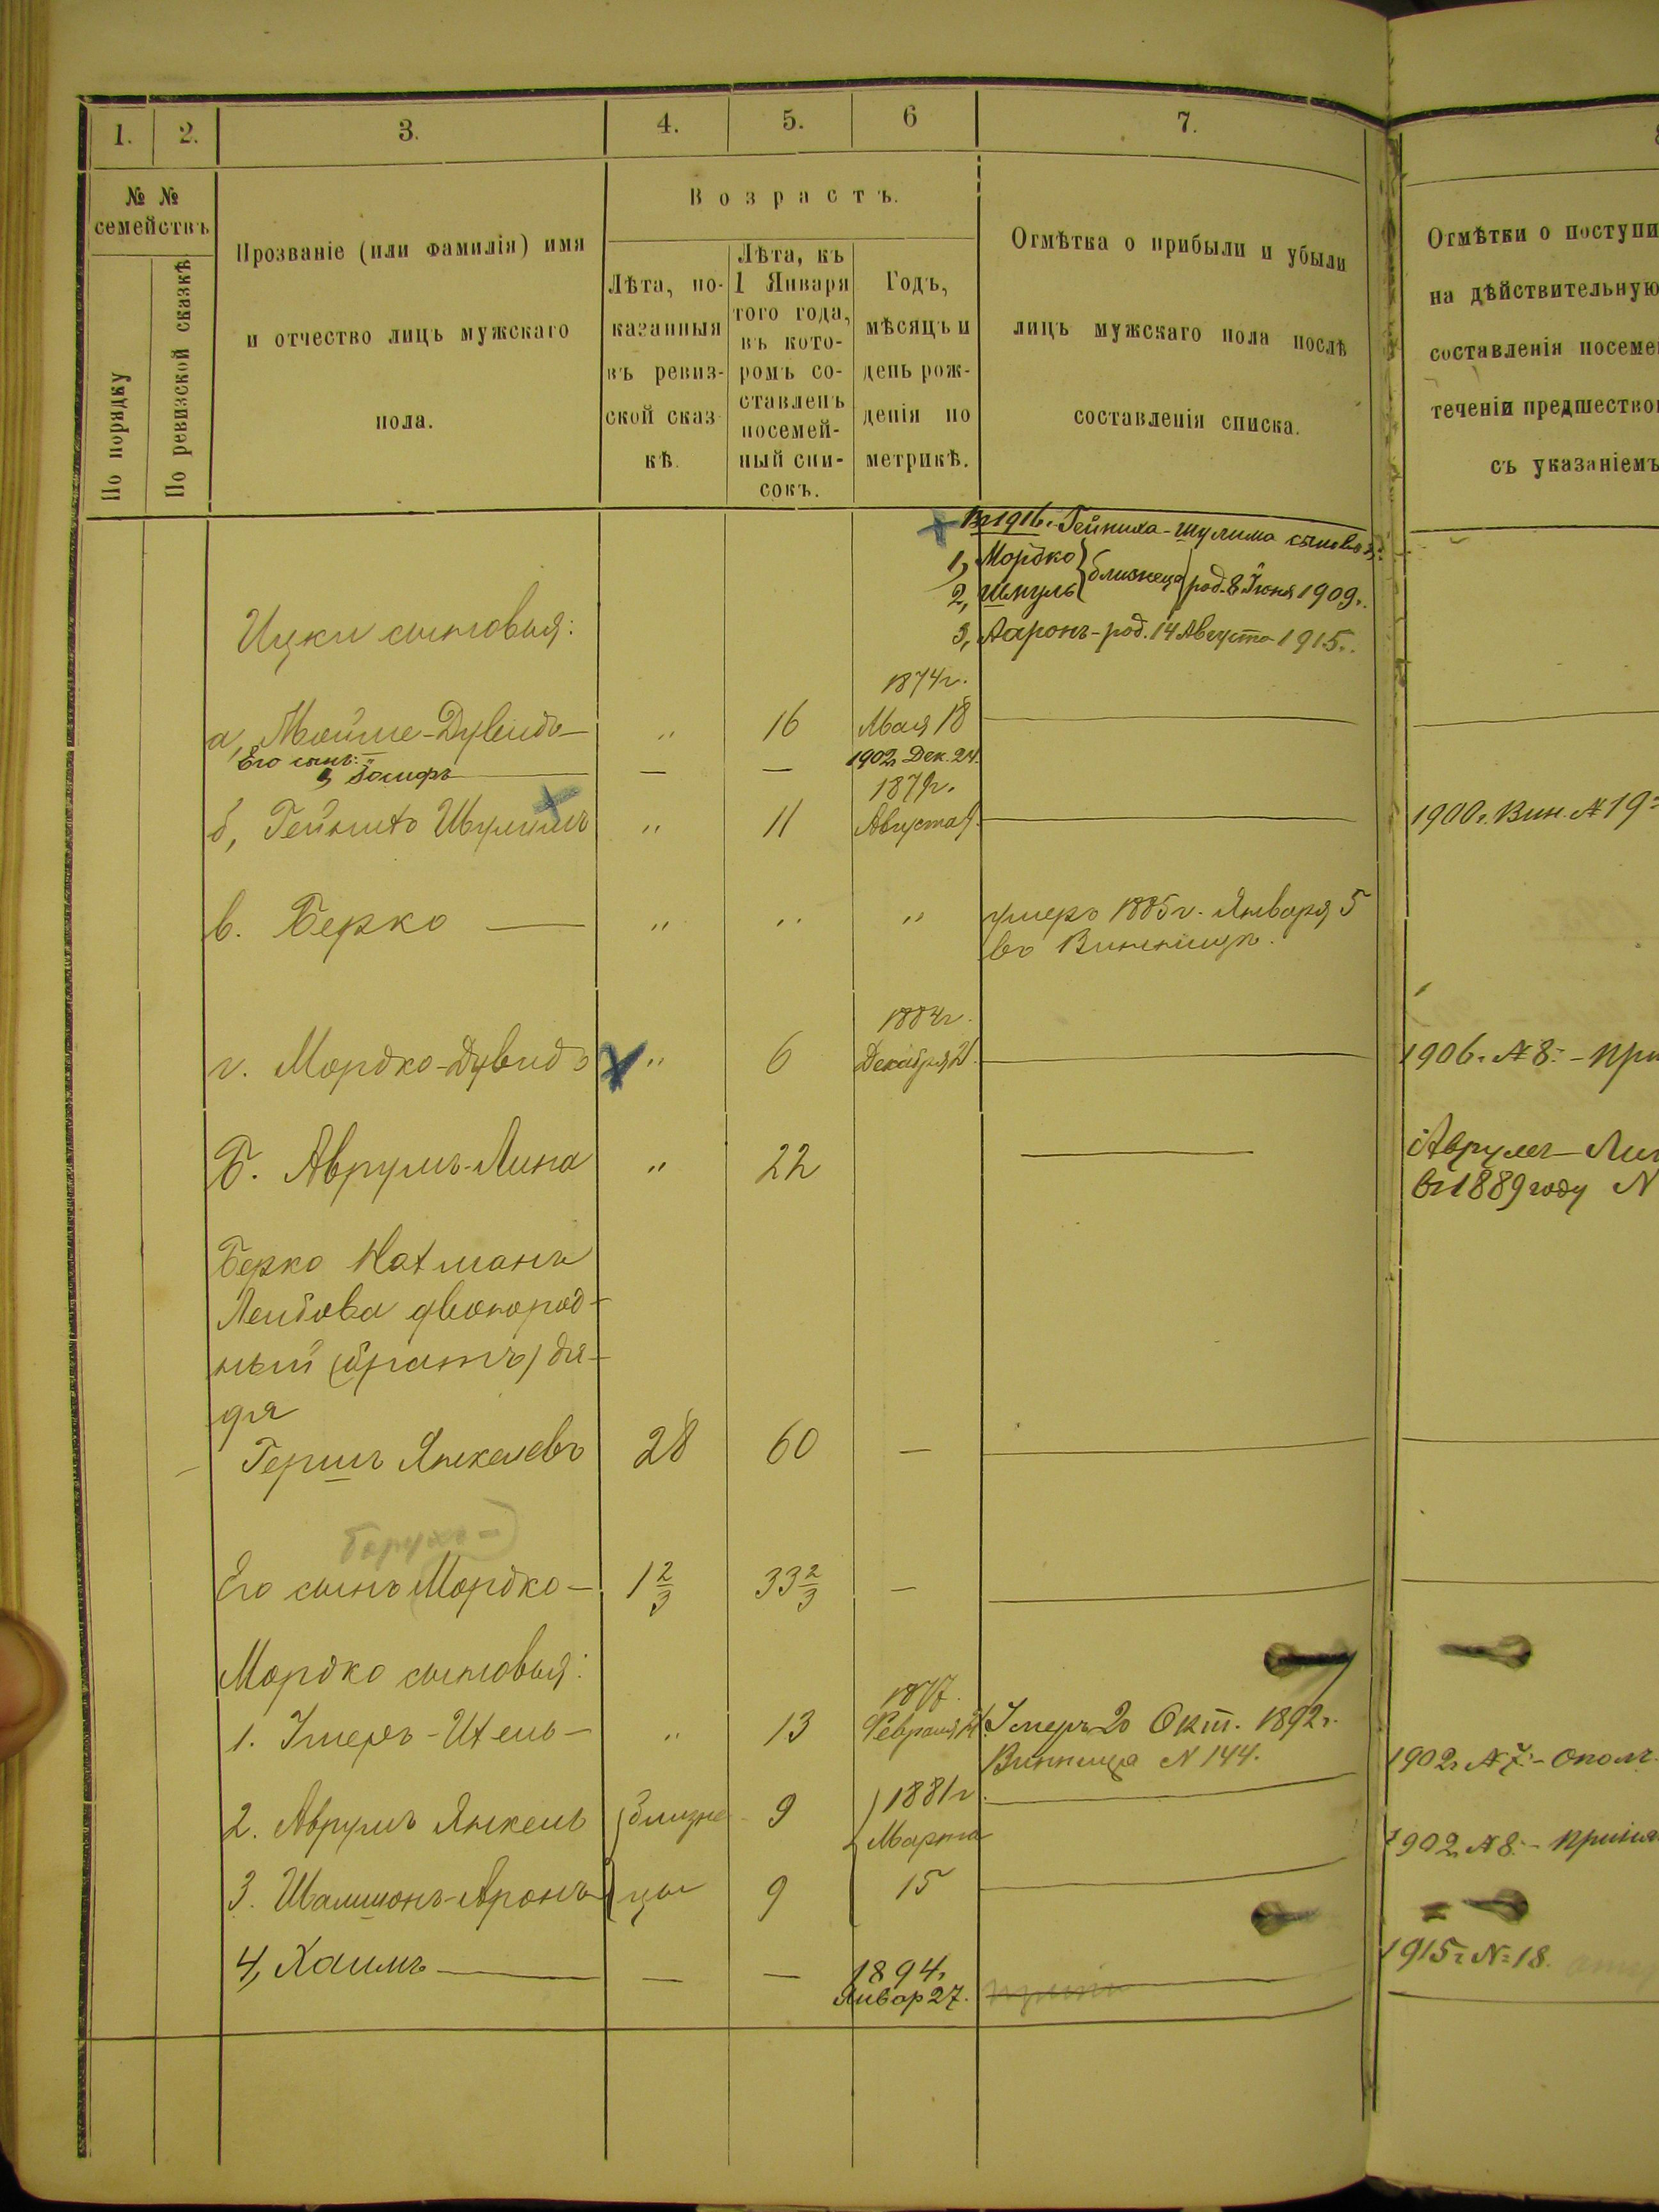 1. 2. 3. 4. 5. 6 7.
№ № семействъ
По порядку
По ревизской сказкѣ
Прозваніе (или фамилія) имя
и отчество лицъ мужскаго
пола.
Возрастъ.
Лѣта, по-
казанныя
въ ревиз-
ской сказ-
кѣ.
Лѣта, къ
1 Января
того года,
въ кото-
ромъ со-
ставленъ
посемей-
ный спи-
сокъ.
Годъ,
мѣсяцъ и
день рож-
денія по
метрикѣ.
Отмѣтка о прибыли и убыли
лицъ мужскаго пола послѣ
составленія списка.
Отмѣтки о поступи
на дѣйствительную
составленія посеме
теченіи предшество
съ указаніемъ
Въ 1916г. Гейниха-Шулима сыновья:
1, Мордко } близнеца } род. 8 Іюня 1909г.
2, Шмуль
3, Ааронъ-род. 14 Августа 1915г.
Ицки сыновья:
1874г.
а, Мойше-Дувидъ — " 16 Мая 18
Его сынъ:
1, Іосифъ — — — 1902г. Дек. 24.
1879г.
б, Гейнихъ Шулимъ " 11 Августа 1900г. Вин. № 19
в. Берко — " " " умеръ 1885г. Января 5
въ Винницѣ.
1884г.
г. Мордко-Дувидъ " 6 Декабря 21 1906г. № 8. - при
Б. Аврумъ-Липа " 22 — Аврумъ-Лип
въ 1889 году N
Берко Нахмана
Лейбова двоюрод-
ный (братъ) дя-
дя
Гершъ Янкелевъ 28 60 —
Барухъ-
Его сынъ Мордко — 1 2/3 33 2/3 —
Мордко сыновья:
1877.
1. Умеръ-Ихель — " 13 Февраля Умеръ 20 Окт. 1892г.
Винница N 144.
1902г. № 7. - Ополч.
2. Аврумъ Янкель } близне- 9 } 1881г.
Марта
1902г. № 8. - Приня
3. Шамшонъ-Аронъ } цы 9 15
4, Хаимъ — — — 1894г.
Январ 27.
1915г. № 18.